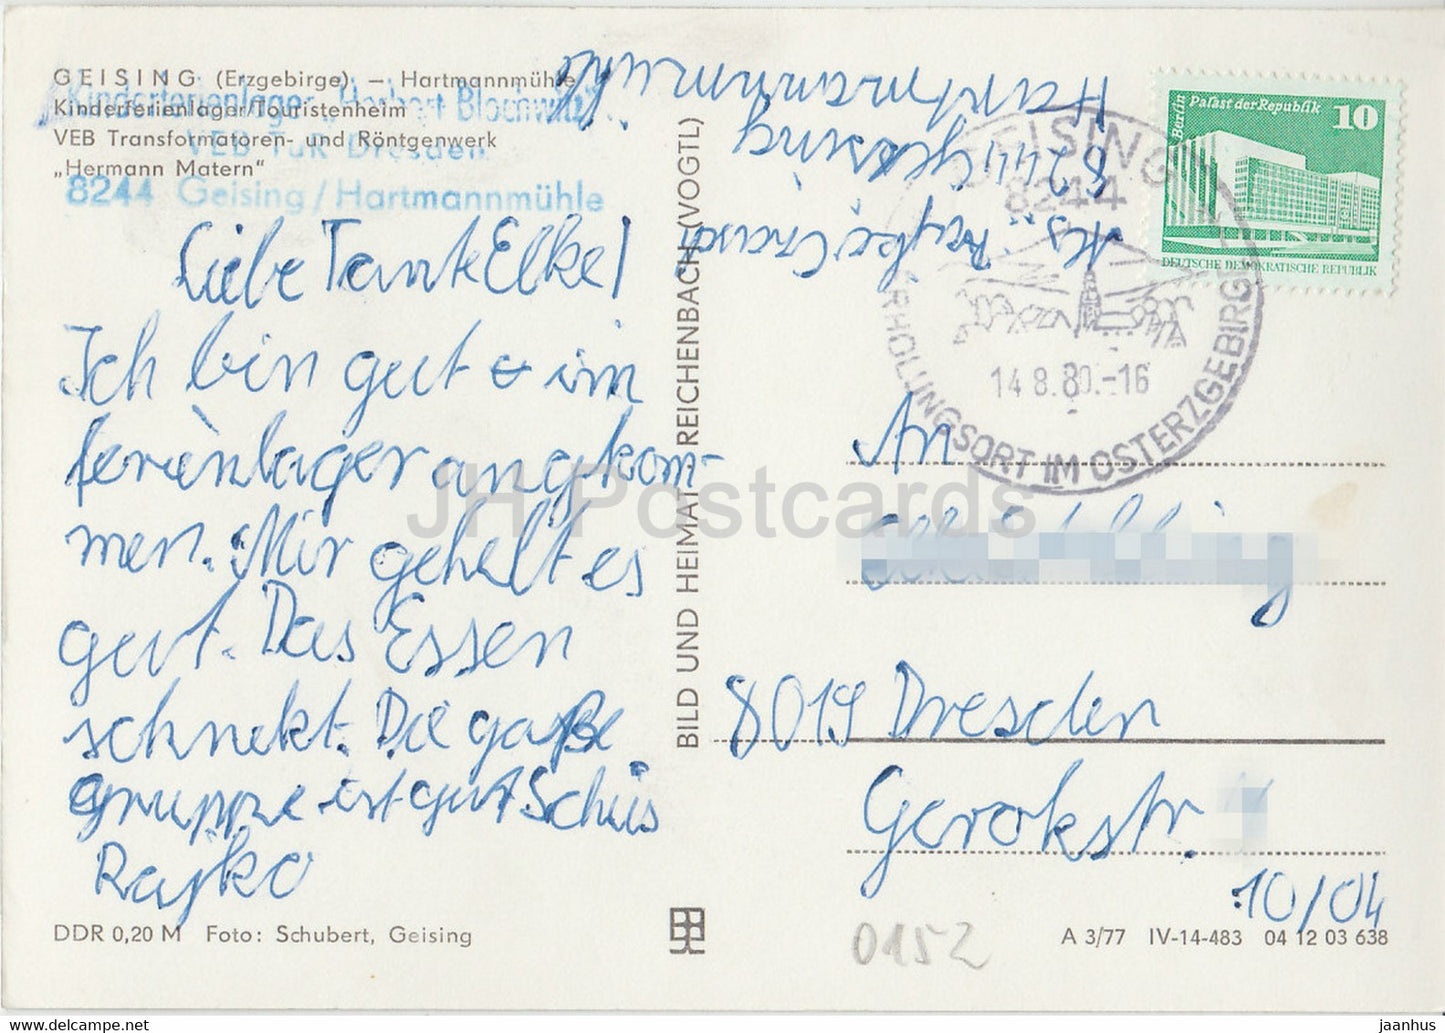 GEISING (Erzgebirge) – Hartmannmühle
Kinderferienlager/Touristenheim
VEB Transformatoren- und Röntgenwerk
„Hermann Matern“
Kinderferienlager
VEB TuR Dresden
8244 Geising/Hartmannmühle
Liebe Tante Elke!
Ich bin gut & im
ferienlager angkom-
men. Mir gehelt es
gut. Das Essen
schmekt. Die gaße
gruppe ist gut Schüs
Rayko
DDR 0,20 M Foto: Schubert, Geising
BILD UND HEIMAT REICHENBACH (VOGTL)
Rayko
8244 Geising
Hartmannmühle
GEISING
8244
14.8.80.-16
ERHOLUNGSORT IM OSTERZGEBIRGE
Berlin Palast der Republik 10
DEUTSCHE DEMOKRATISCHE REPUBLIK
An
8019 Dresden
Gerokstr.
10/04
0152
A 3/77 IV-14-483 04 12 03 638
JH Postcards
jaanhus ---- delcampe.net